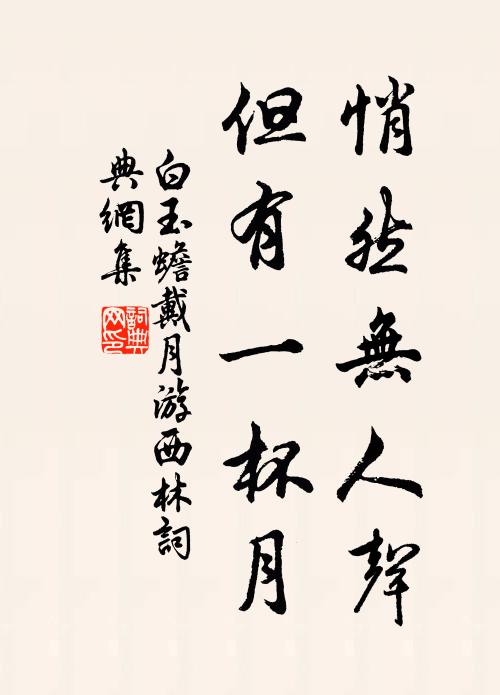 悄然無人聲
但有一杯月
白玉蟾戴月游西林詞
典網集
詞典
网印